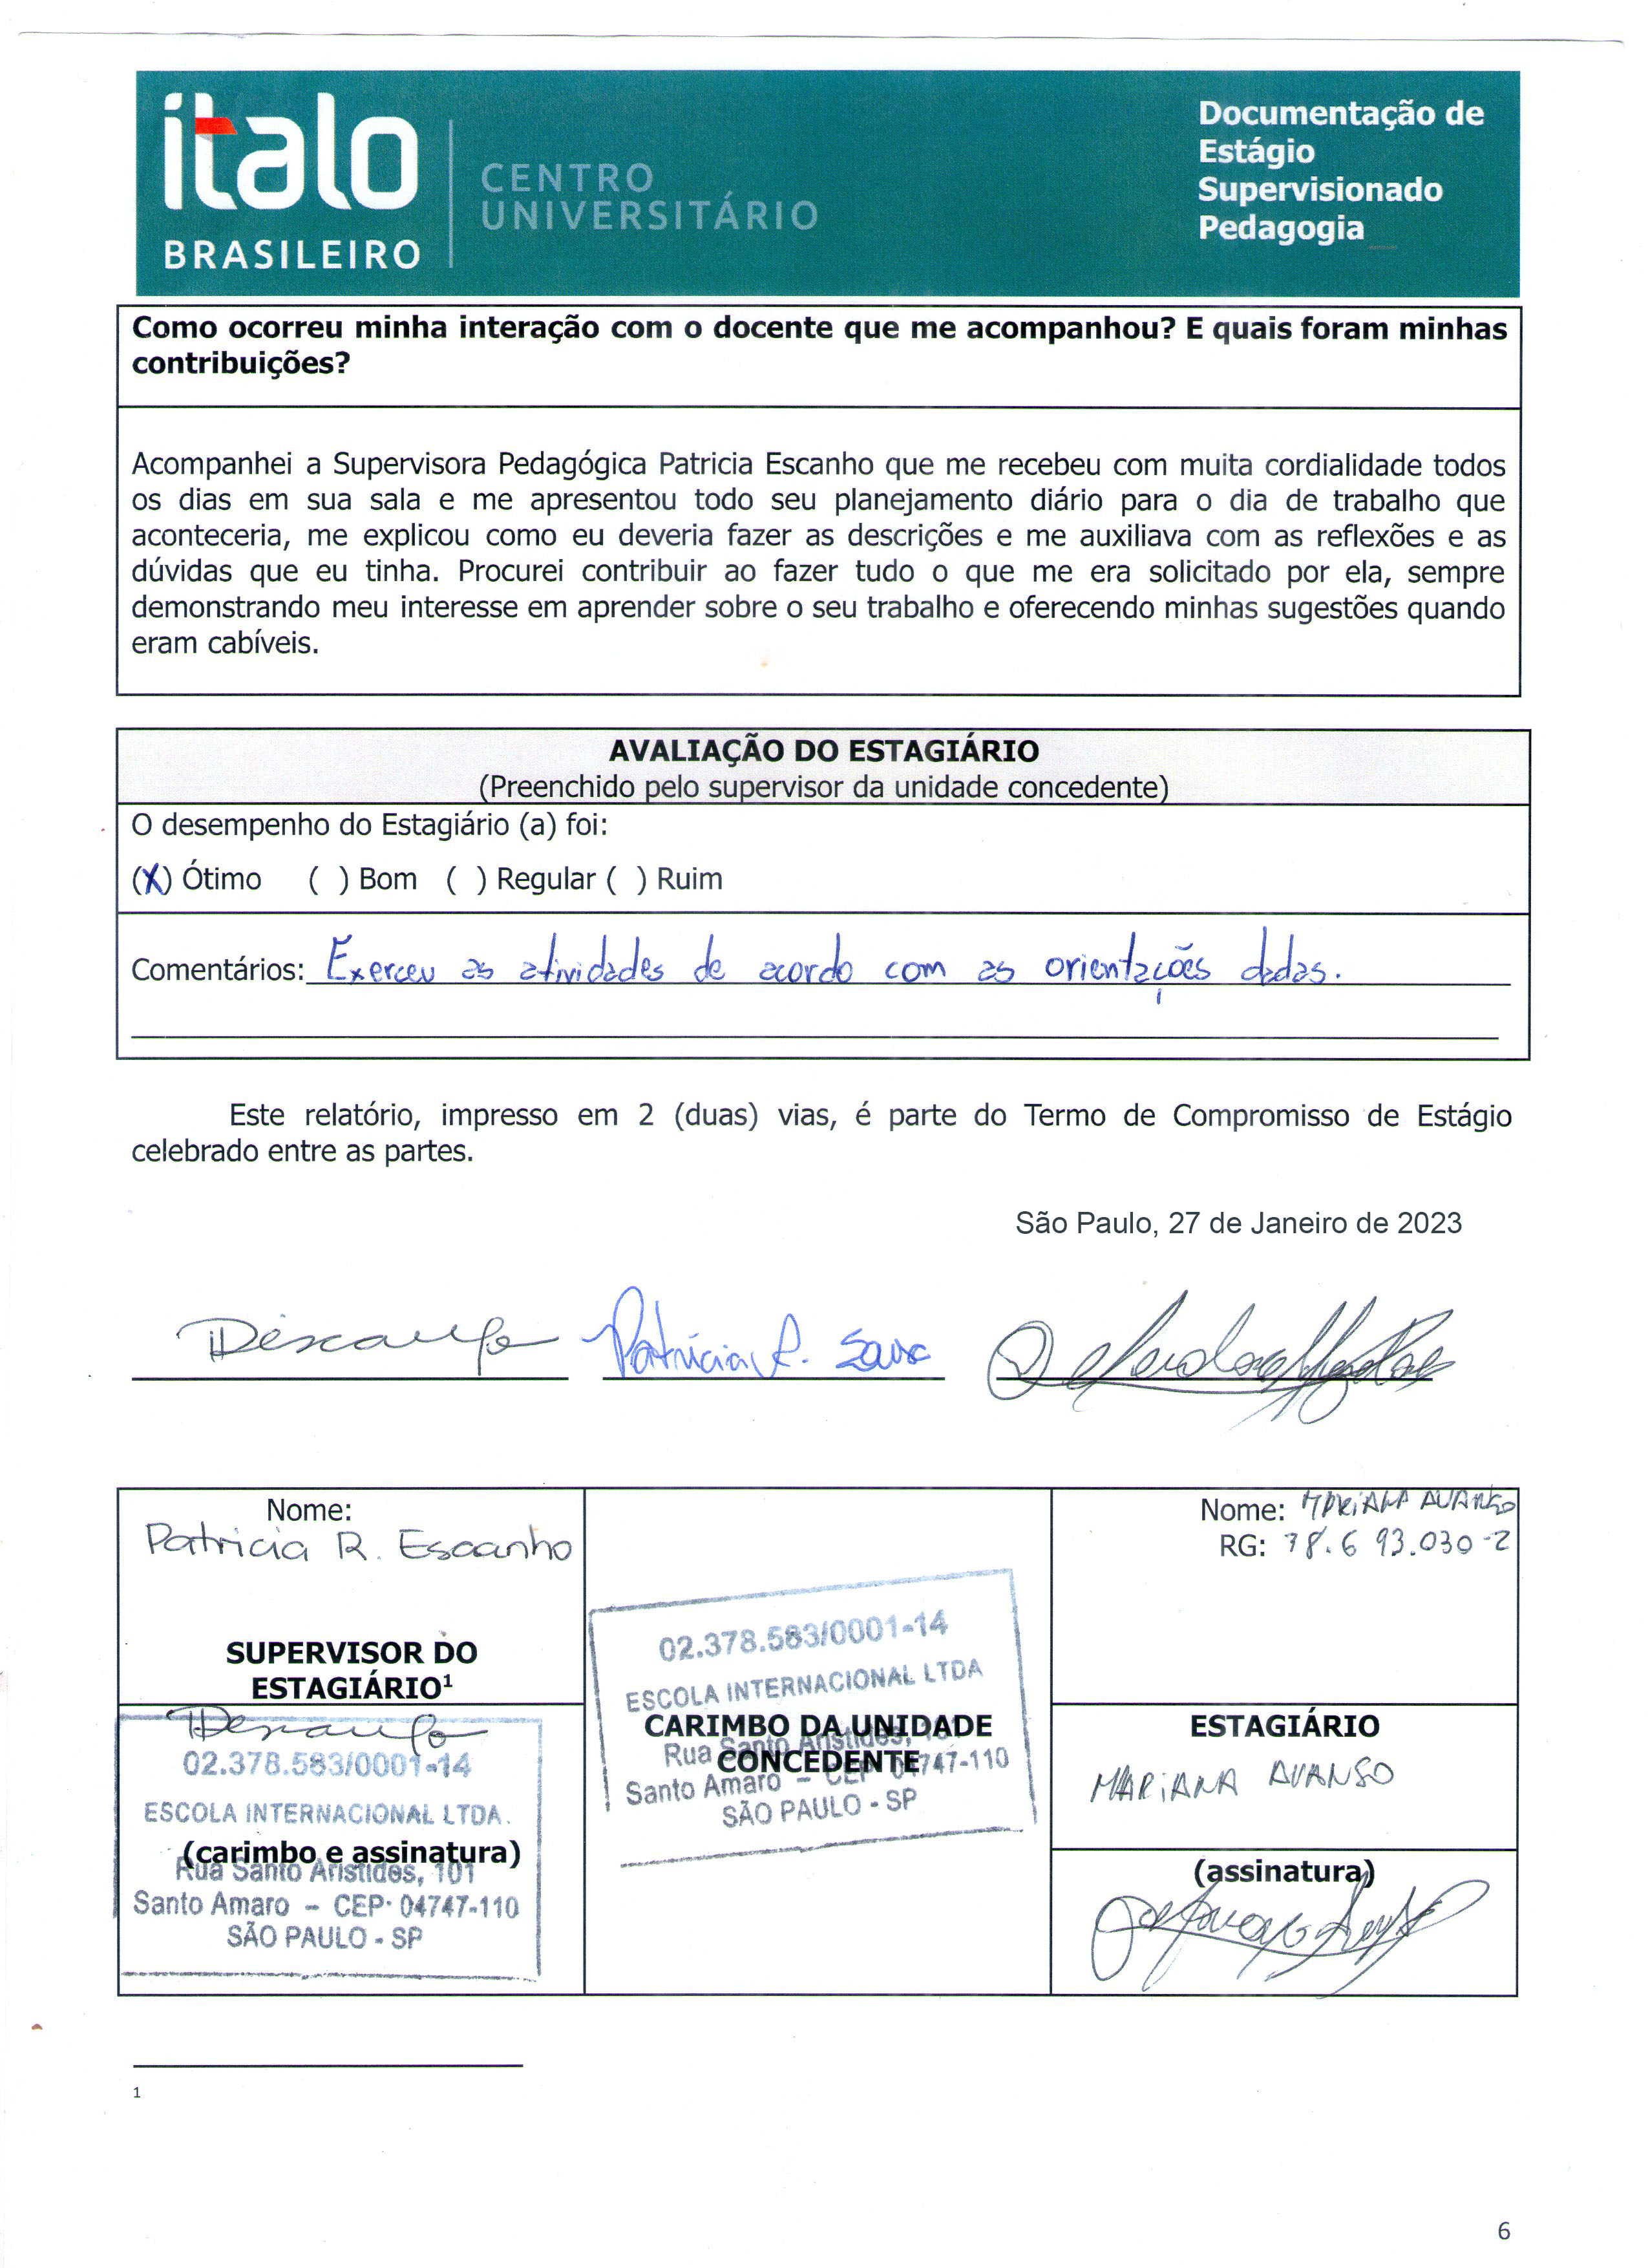 italo
BRASILEIRO
CENTRO
UNIVERSITÁRIO
Documentação de
Estágio
Supervisionado
Pedagogia
Como ocorreu minha interação com o docente que me acompanhou? E quais foram minhas
contribuições?
Acompanhei a Supervisora Pedagógica Patricia Escanho que me recebeu com muita cordialidade todos
os dias em sua sala e me apresentou todo seu planejamento diário para o dia de trabalho que
aconteceria, me explicou como eu deveria fazer as descrições e me auxiliava com as reflexões e as
dúvidas que eu tinha. Procurei contribuir ao fazer tudo o que me era solicitado por ela, sempre
demonstrando meu interesse em aprender sobre o seu trabalho e oferecendo minhas sugestões quando
eram cabíveis.
AVALIAÇÃO DO ESTAGIÁRIO
(Preenchido pelo supervisor da unidade concedente)
O desempenho do Estagiário (a) foi:
(X) Ótimo ( ) Bom ( ) Regular ( ) Ruim
Comentários: Exerceu as atividades de acordo com as orientações dadas.
Este relatório, impresso em 2 (duas) vias, é parte do Termo de Compromisso de Estágio
celebrado entre as partes.
São Paulo, 27 de Janeiro de 2023
Patrícia
Nome:
Patricia R. Escanho
SUPERVISOR DO
ESTAGIÁRIO¹
02.378.583/0001-14
ESCOLA INTERNACIONAL LTDA.
(carimbo e assinatura)
Rua Santo Aristides, 101
Santo Amaro - CEP: 04747-110
SÃO PAULO - SP
02.378.583/0001-14
ESCOLA INTERNACIONAL LTDA
CARIMBO DA UNIDADE
Rua Santo Aristides, 101
CONCEDENTE
Santo Amaro - CEP 04747-110
SÃO PAULO - SP
Nome: MARIANA AVANSO
RG: 38.693.030-2
ESTAGIÁRIO
MARIANA AVANSO
(assinatura)
1
6